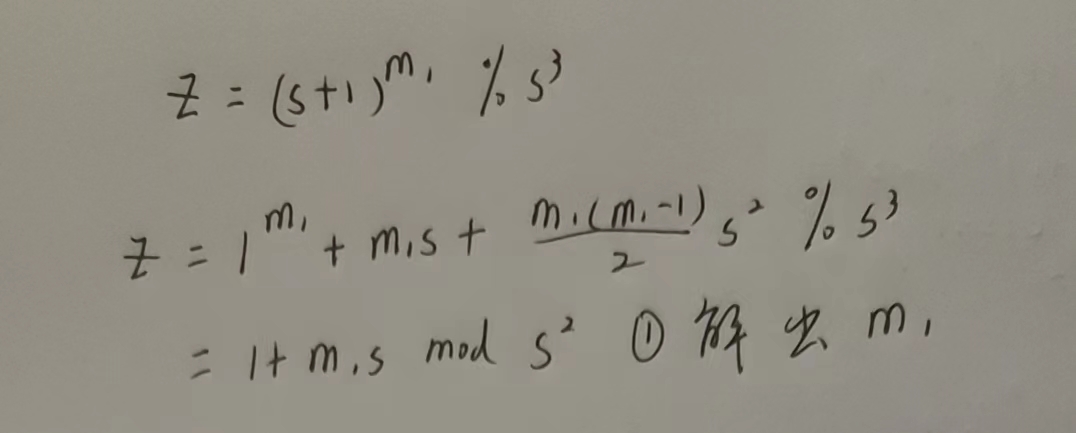 z = (s+1)^{m₁} % s³
z = 1^{m₁} + m₁s + \frac{m₁(m₁-1)}{2} s² % s³
= 1+ m₁s mod s² ① 解出 m₁